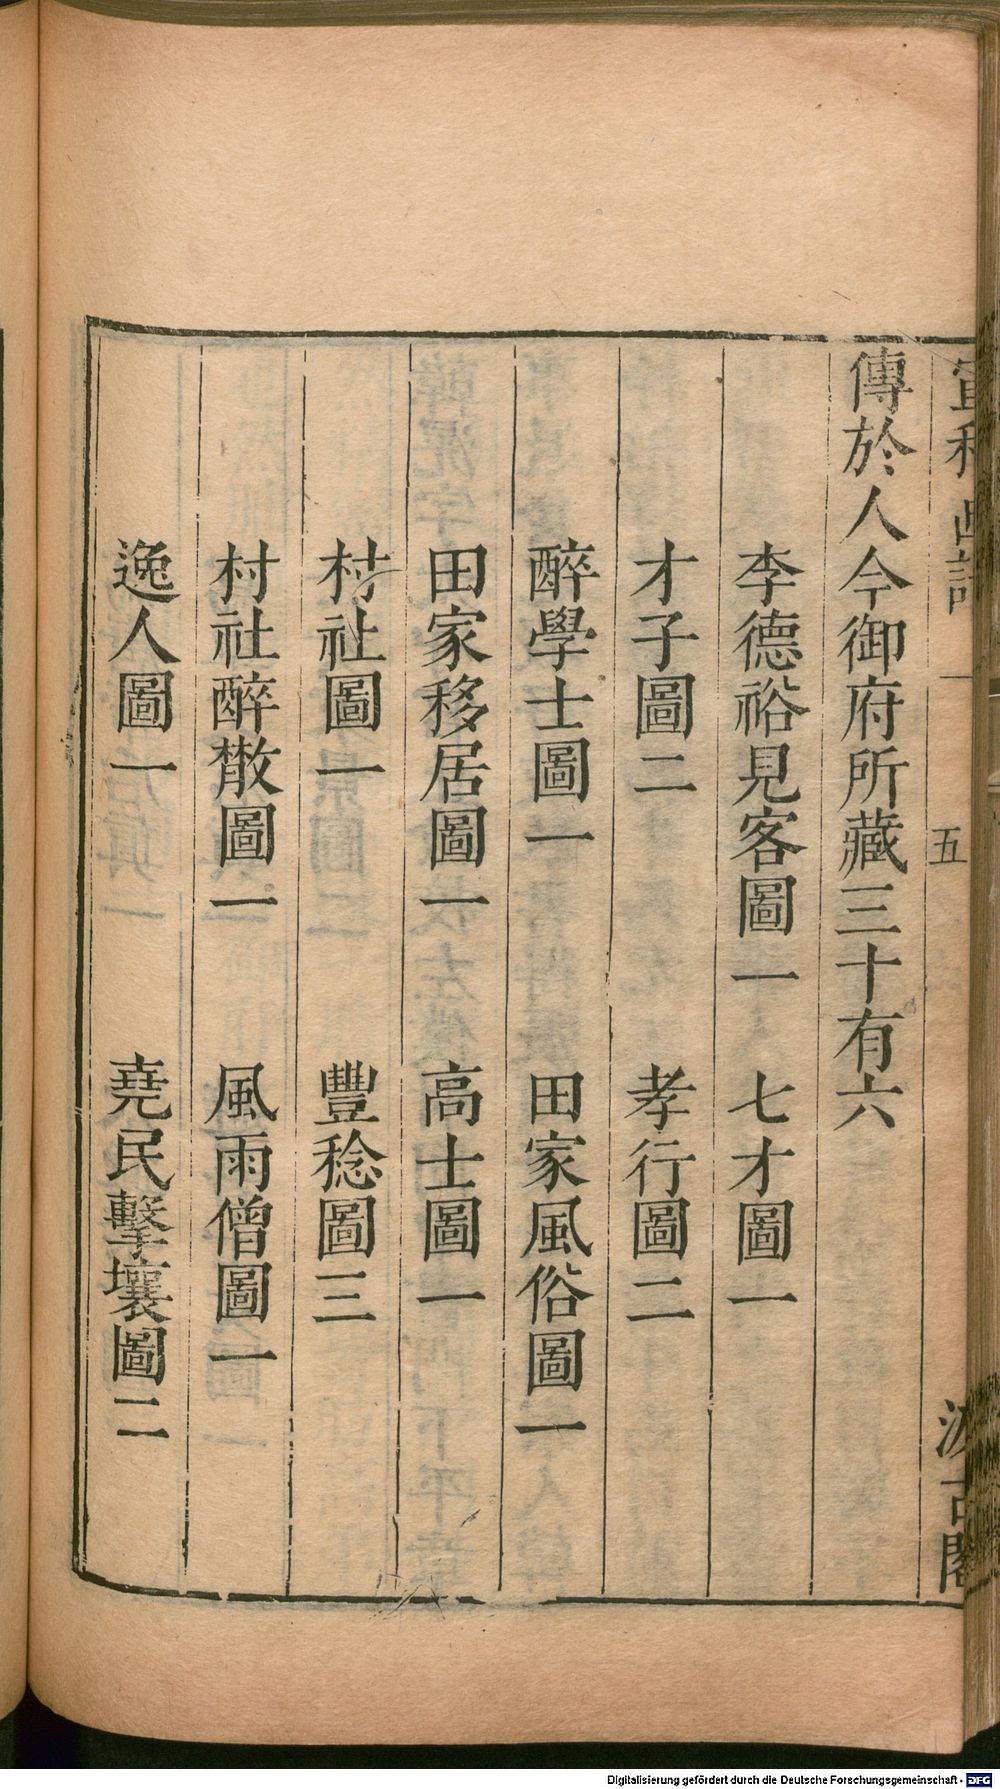 宣和畫譜 一 五 汲古閣
傳於人今御府所藏三十有六
李德裕見客圖一 七才圖一
才子圖二 孝行圖二
醉學士圖一 田家風俗圖一
田家移居圖一 高士圖一
村社圖一 豐稔圖三
村社醉散圖一 風雨僧圖一
逸人圖一 堯民擊壤圖二
Digitalisierung gefördert durch die Deutsche Forschungsgemeinschaft - DFG